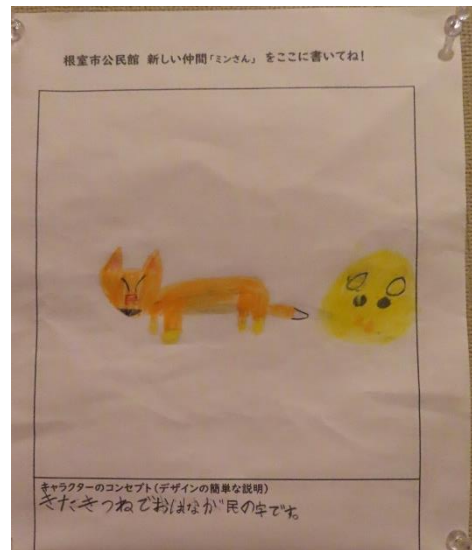 根室市公民館 新しい仲間「ミンさん」 をここに書いてね!
キャラクターのコンセプト(デザインの簡単な説明)
きたきつねでおはなが民の字です。